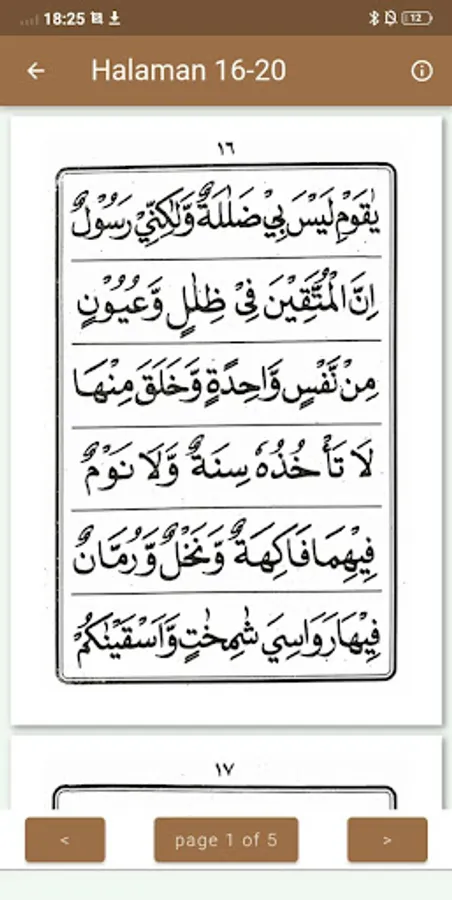 18:25
12
Halaman 16-20
١٦
يٰقَوْمِ لَيْسَ بِيْ ضَلٰلَةٌ وَّلٰكِنِّيْ رَسُوْلٌ
اِنَّ الْمُتَّقِيْنَ فِيْ ظِلٰلٍ وَّعُيُوْنٍ
مِنْ نَّفْسٍ وَّاحِدَةٍ وَّخَلَقَ مِنْهَا
لَا تَأْخُذُهٗ سِنَةٌ وَّلَا نَوْمٌ
فِيْهِمَا فَاكِهَةٌ وَّنَخْلٌ وَّرُمَّانٌ
فِيْهَا رَوَاسِيَ شٰمِخٰتٍ وَّاَسْقَيْنٰكُمْ
١٧
<
page 1 of 5
>